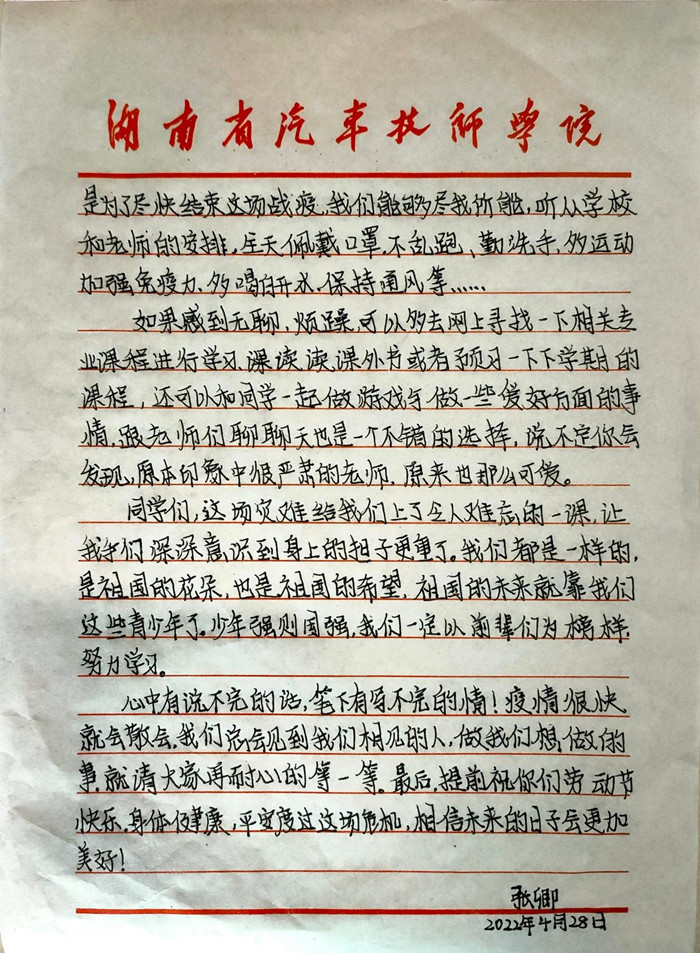 湖南省汽车技师学院
是为了尽快结束这场战疫,我们能够尽我所能,听从学校
和老师的安排,全天佩戴口罩,不乱跑、勤洗手,多运动
加强免疫力、多喝白开水、保持通风等……
如果感到无聊,烦躁,可以多去网上寻找一下相关专
业课程进行学习,课读读课外书或者预习一下下学期的
课程,还可以和同学一起做游戏与做一些爱好方面的事
情,跟老师们聊聊天也是一个不错的选择,说不定你会
发现,原本印象中很严肃的老师,原来也那么可爱。
同学们,这场灾难给我们上了令人难忘的一课,让
我们深深意识到身上的担子更重了。我们都是一样的,
是祖国的花朵,也是祖国的希望,祖国的未来就靠我们
这些青少年了。少年强则国强,我们一定以前辈们为榜样,
努力学习。
心中有说不完的话,笔下有写不完的情!疫情很快
就会散会,我们总会见到我们相见的人,做我们想做的
事,就请大家再耐心的等一等。最后,提前祝你们劳动节
快乐,身体健康,平安度过这场危机,相信未来的日子会更加
美好!
张卿
2022年4月28日